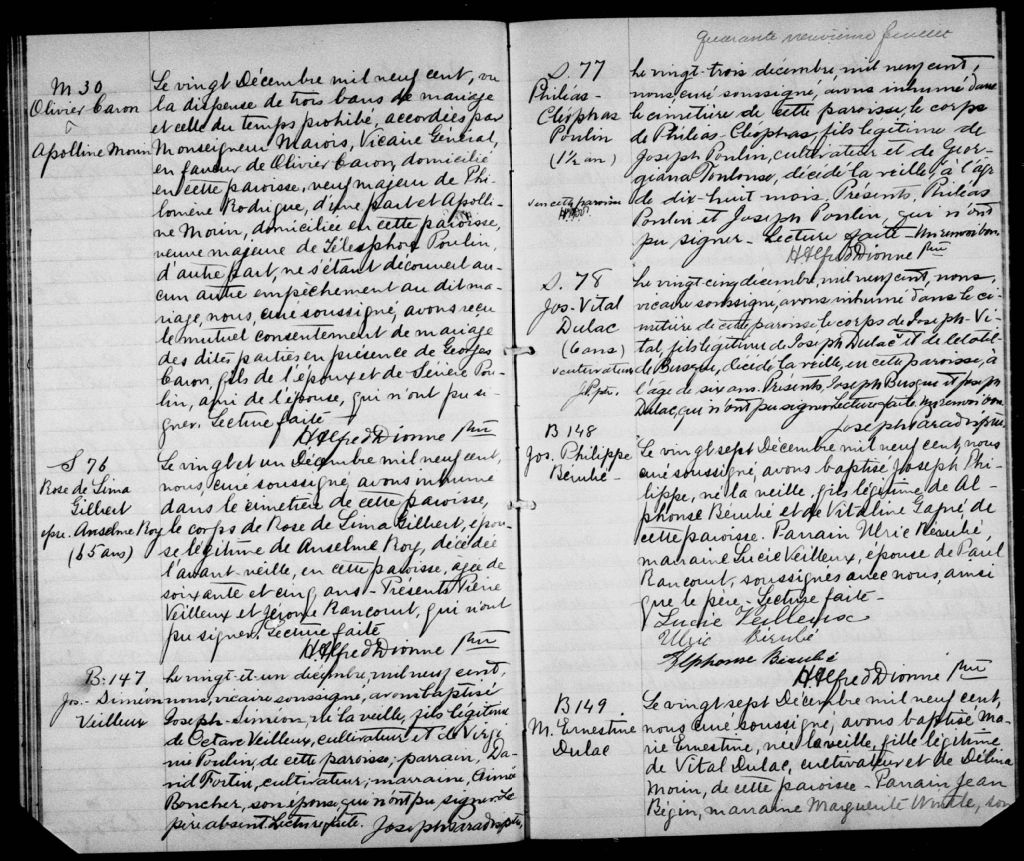 M 30
Olivier Caron
&
Apolline Morin
Le vingt Décembre mil neuf cent, vu
la dispense de trois bans de mariage
et celle du temps prohibé, accordées par
Monseigneur Marois, Vicaire Général,
en faveur de Olivier Caron, domicilié
en cette paroisse, veuf majeur de Phi-
lomène Rodrigue, d'une part et Apolli-
ne Morin, domiciliée en cette paroisse,
veuve majeure de Télesphore Poulin,
d'autre part, ne s'étant découvert au-
cun autre empêchement au dit ma-
riage, nous, curé soussigné, avons reçu
le mutuel consentement de mariage
des dites parties en présence de Georges
Caron, fils de l'époux et de Sévère Pou-
lin, ami de l'épouse, qui n'ont pu si-
gner. Lecture faite
H Alfred Dionne Ptre
S 76
Rose de Lima
Gilbert
épse. Anselme Roy
(65 ans)
Le vingt et un Décembre mil neuf cent,
nous, curé soussigné, avons inhumé
dans le cimetière de cette paroisse,
le corps de Rose de Lima Gilbert, épou-
se légitime de Anselme Roy, décédée
l'avant-veille, en cette paroisse, agée de
soixante et cinq ans - Présents Pierre
Veilleux et Jérome Rancourt, qui n'ont
pu signer. Lecture faite
H. Alfred Dionne Ptre
B. 147
Jos. - Siméon
Veilleux
Le vingt-et-un décembre, mil neuf cent,
nous, vicaire soussigné, avons baptisé
Joseph-Siméon, né la veille, fils légitime
de Octave Veilleux, cultivateur et de Virgi-
nie Poulin, de cette paroisse; parrain, Da-
vid Fortin, cultivateur; marraine, Aimée
Boucher, son épouse, qui n'ont pu signer. Le
père absent. Lecture faite. Joseph Paradis ptre,
quarante neuvième feuillet
S. 77
Philéas-
Cléophas
Poulin
(1½ an)
v en cette paroisse
Le vingt-trois décembre, mil neuf cent,
nous, curé soussigné, avons inhumé dans
le cimetière de cette paroisse, le corps
de Philéas-Cléophas, fils légitime de
Joseph Poulin, cultivateur et de Geor-
giana Toulouse, décédé la veille, à l'âge
de dix-huit mois, Présents, Philéas
Poulin et Joseph Poulin, qui n'ont
pu signer - Lecture faite - Un renvoi bon
H Alfred Dionne Ptre
S. 78
Jos-Vital
Dulac
(6 ans)
v cultivateur
J.P. ptr.
Le vingt-cinq décembre, mil neuf cent, nous,
vicaire soussigné, avons inhumé dans le ci-
metière de cette paroisse le corps de Joseph-Vi-
tal, fils légitime de Joseph Dulac v et de Clotil-
de Busque, décédé la veille, en cette paroisse, à
l'âge de six ans. Présents, Joseph Busque et Joseph
Dulac, qui n'ont pu signer. Lecture faite. Un renvoi bon
Joseph Paradis ptre.
B 148
Jos. Philippe
Bérubé -
Le vingt sept Décembre mil neuf cent, nous
curé soussigné, avons baptisé Joseph Phi-
lippe, né la veille, fils légitime de Al-
phonse Bérubé et de Vitaline Gagné, de
cette paroisse. Parrain Ulric Bérubé,
marraine Lucie Veilleux, épouse de Paul
Rancourt, soussignés avec nous, ainsi
que le père - Lecture faite -
Lucie Veilleux
Ulric Bérubé
Alphonse Bérubé
H Alfred Dionne Ptre
B 149
M. Ernestine
Dulac
Le vingt sept Décembre mil neuf cent,
nous curé soussigné, avons baptisé Ma-
rie Ernestine, née la veille, fille légitime
de Vital Dulac, cultivateur et de Délina
Morin, de cette paroisse - Parrain Jean
Bégin, marraine Marguerite son